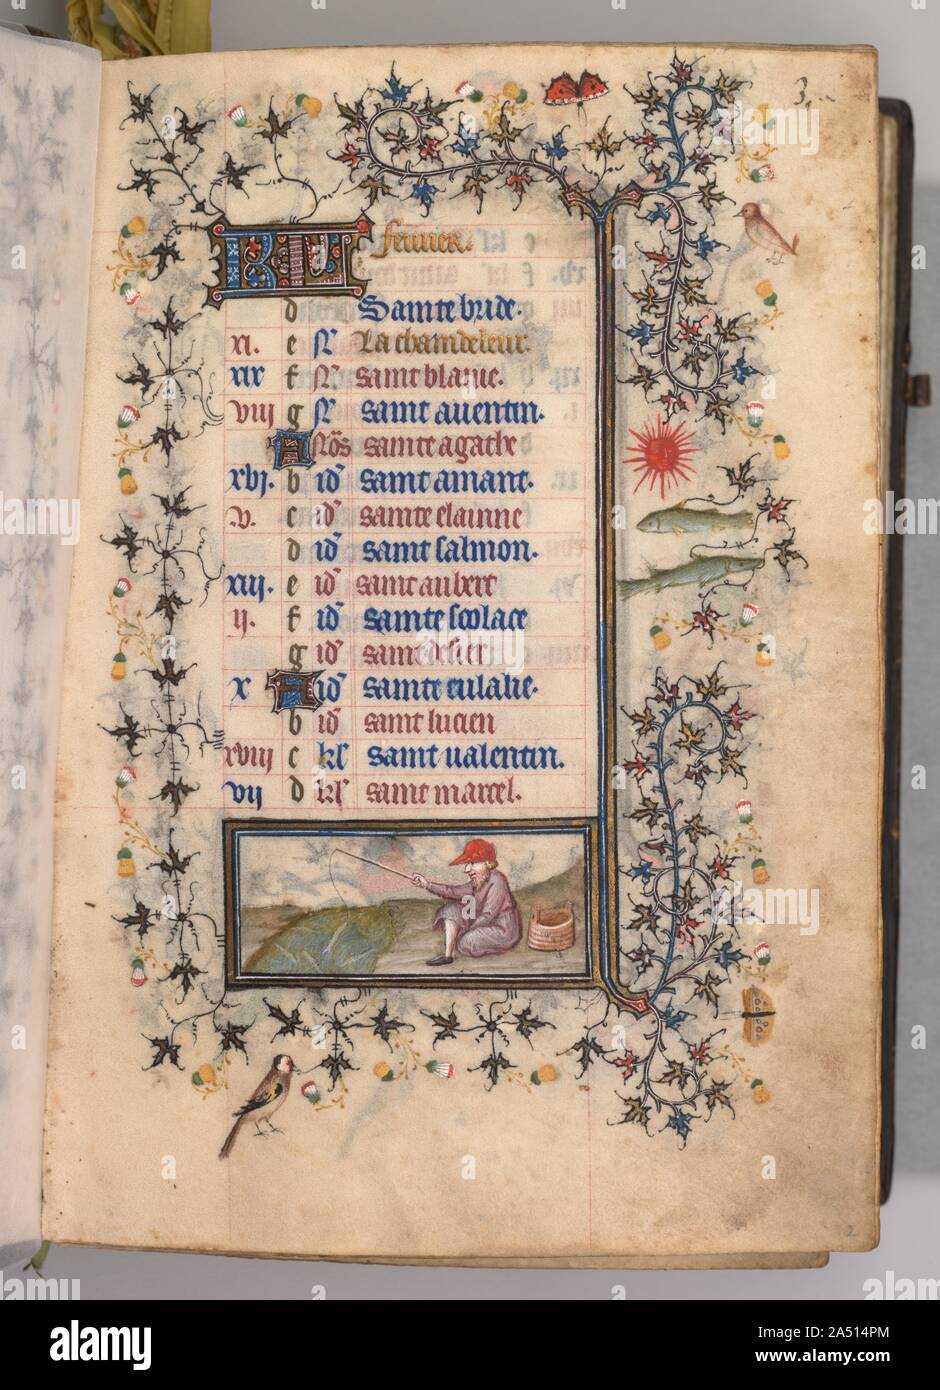 3
KL feurier.
d Sainte bride.
xi. e N La chandeleur.
xix f N saint blaise.
viii g N saint auentin.
A Nōs sainte agathe
xvj. b id saint amant.
v. c id sainte elainne
d id saint salmon.
xiij. e id saint aubert
ij. f id sainte scolace
g id saint desier
x A id sainte eulalie.
b id saint lucien
xviij c kl saint ualentin.
vij d kl saint marcel.
2
alamy
Image ID: 2A514PM
www.alamy.com